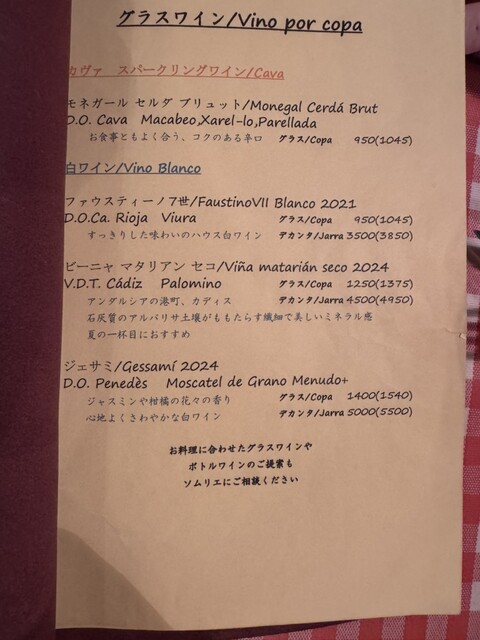 グラスワイン/Vino por copa
カヴァ　スパークリングワイン/Cava
モネガール セルダ ブリュット/Monegal Cerdá Brut
D.O. Cava   Macabeo,Xarel-lo,Parellada
お食事ともよく合う、コクのある辛口   グラス/Copa   950(1045)
白ワイン/Vino Blanco
ファウスティーノ7世/FaustinoVII Blanco 2021
D.O.Ca. Rioja   Viura   グラス/Copa   950(1045)
すっきりした味わいのハウス白ワイン   デカンタ/Jarra 3500(3850)
ビーニャ マタリアン セコ/Viña matarián seco 2024
V.D.T. Cádiz   Palomino   グラス/Copa   1250(1375)
アンダルシアの港町、カディス   デカンタ/Jarra 4500(4950)
石灰質のアルバリサ土壌がももたらす繊細で美しいミネラル感
夏の一杯目におすすめ
ジェサミ/Gessamí 2024
D.O. Penedès   Moscatel de Grano Menudo+
ジャスミンや柑橘の花々の香り   グラス/Copa   1400(1540)
心地よくさわやかな白ワイン   デカンタ/Jarra 5000(5500)
お料理に合わせたグラスワインや
ボトルワインのご提案も
ソムリエにご相談ください